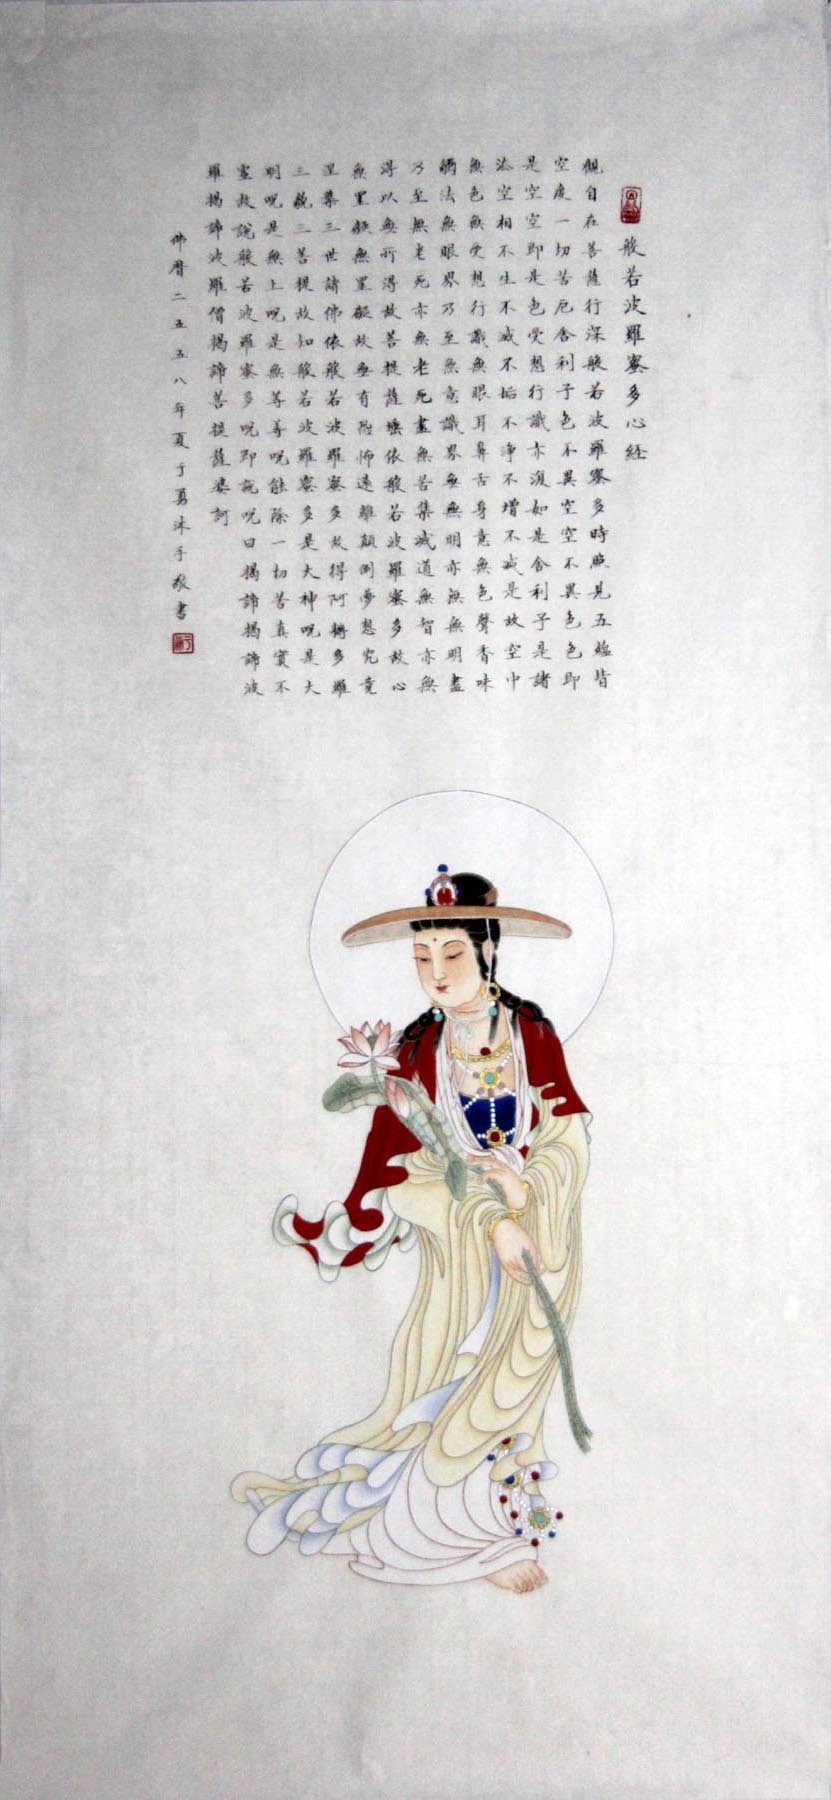 般若波羅蜜多心経
觀自在菩薩行深般若波羅蜜多時照見五蘊皆
空度一切苦厄舍利子色不異空空不異色色即
是空空即是色受想行識亦復如是舍利子是諸
法空相不生不滅不垢不淨不增不減是故空中
無色無受想行識無眼耳鼻舌身意無色聲香味
觸法無眼界乃至無意識界無無明亦無無明盡
乃至無老死亦無老死盡無苦集滅道無智亦無
得以無所得故菩提薩埵依般若波羅蜜多故心
無罣礙無罣礙故無有恐怖遠離顛倒夢想究竟
涅槃三世諸佛依般若波羅蜜多故得阿耨多羅
三藐三菩提故知般若波羅蜜多是大神呪是大
明呪是無上呪是無等等呪能除一切苦真實不
虛故說般若波羅蜜多呪即說呪曰揭諦揭諦波
羅揭諦波羅僧揭諦菩提薩婆訶
佛曆二五五八年夏于勇沐手敬書